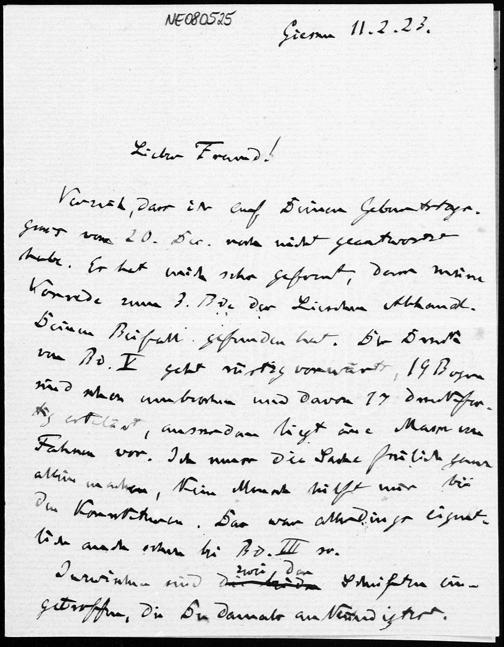 NE080525
Giessen 11.2.23.
Lieber Freund!
Verzeih, dass ich auf Deinen Geburtstags-
gruss vom 20. Dez. noch nicht geantwortet
habe. Er hat mich sehr gefreut, dass meine
Vorrede zum 3. Bde der Lieschen Abhandl.
Deinen Beifall gefunden hat. Der Druck
von Bd. V geht rüstig vorwärts, 19 Bogen
sind schon umbrochen und davon 17 druckfer-
tig erklärt, ausserdem liegt eine Masse von
Fahnen vor. Ich muss die Sache freilich ganz
allein machen, kein Mensch hilft mir bei
den Korrekturen. Das war allerdings eigent-
lich auch schon bei Bd. III so.
Inzwischen sind zwei der Schriften ein-
getroffen, die Du damals ankündigtest.